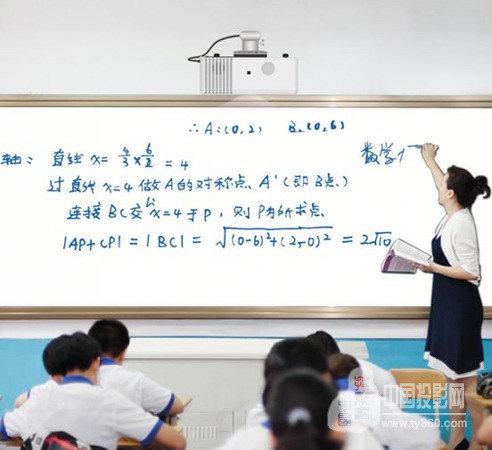 ∴ A:(0,2) B:(0,6)
数学
轴: 直线 x= 4/3 × 6/2 = 4
过直线 x=4 做A的对称点、A'(即B点、)
连接BC交 x=4 于P, 则P为所求点、
|AP+CP|=|BC|= √(0-6)²+(2-0)² = 2√10
中国投影网
www.ty360.com